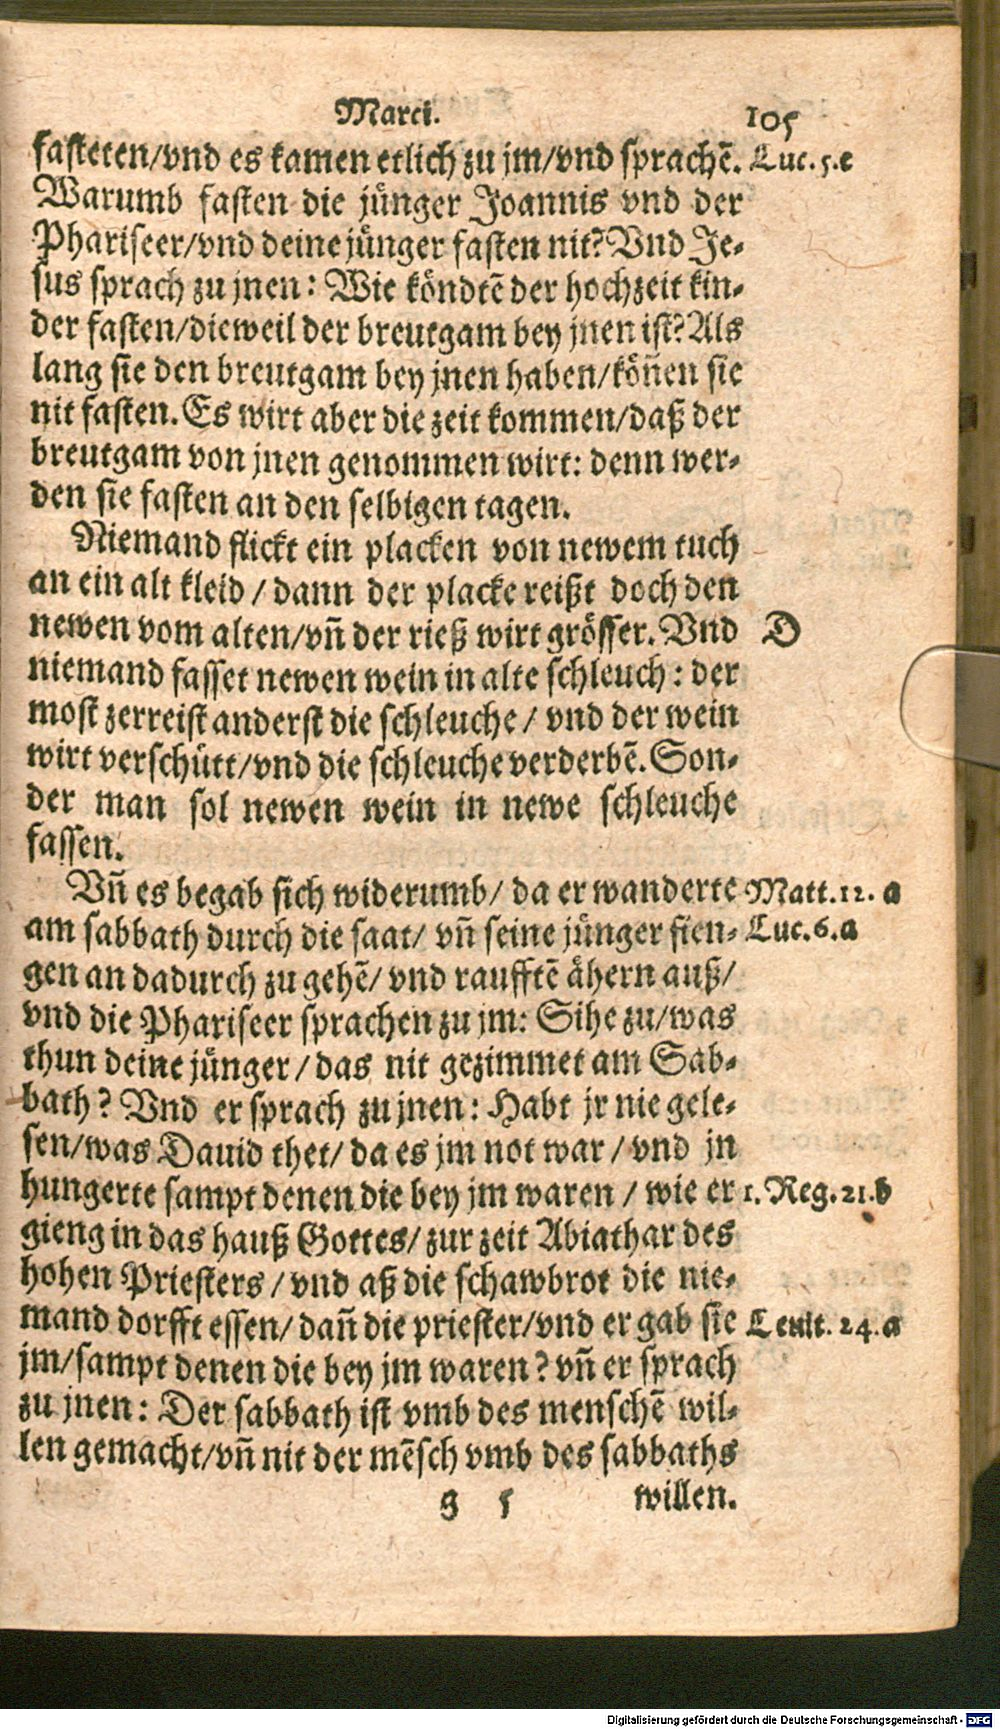 Marci. 105
fasteten/vnd es kamen etlich zu jm/vnd sprachẽ. Luc. 5.e
Warumb fasten die jünger Joannis vnd der
Phariseer/vnd deine jünger fasten nit? Vnd Je-
sus sprach zu jnen: Wie köndtẽ der hochzeit kin-
der fasten/dieweil der breutgam bey jnen ist? Als
lang sie den breutgam bey jnen haben/köñen sie
nit fasten. Es wirt aber die zeit kommen/daß der
breutgam von jnen genommen wirt: denn wer-
den sie fasten an den selbigen tagen.
Niemand flickt ein placken von newem tuch
an ein alt kleid/dann der placke reißt doch den
newen vom alten/vñ der rieß wirt grösser. Vnd D
niemand fasset newen wein in alte schleuch: der
most zerreist anderst die schleuche/ vnd der wein
wirt verschütt/vnd die schleuche verderbẽ. Son-
der man sol newen wein in newe schleuche
fassen.
Vñ es begab sich widerumb/ da er wanderte Matt. 12. a
am sabbath durch die saat/ vñ seine jünger fien- Luc. 6. a
gen an dadurch zu gehẽ/ vnd raufftẽ ähern auß/
vnd die Phariseer sprachen zu jm: Sihe zu/was
thun deine jünger/das nit gezimmet am Sab-
bath? Vnd er sprach zu jnen: Habt jr nie gele-
sen/was Dauid thet/ da es jm not war/vnd jn
hungerte sampt denen die bey jm waren/wie er 1. Reg. 21. b
gieng in das hauß Gottes/ zur zeit Abiathar des
hohen Priesters/vnd aß die schawbrot die nie-
mand dorfft essen/ dañ die priester/vnd er gab sie Leuit. 24. a
jm/sampt denen die bey jm waren? vñ er sprach
zu jnen: Der sabbath ist vmb des menschẽ wil-
len gemacht/vñ nit der mẽsch vmb des sabbaths
g 5 willen.
Digitalisierung gefördert durch die Deutsche Forschungsgemeinschaft - DFG